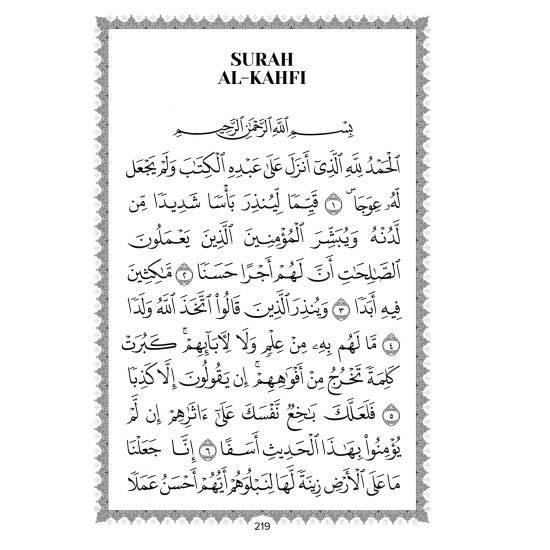 SURAH
AL-KAHFI
بِسْمِ اللَّهِ الرَّحْمَٰنِ الرَّحِيمِ
الْحَمْدُ لِلَّهِ الَّذِي أَنزَلَ عَلَىٰ عَبْدِهِ الْكِتَابَ وَلَمْ يَجْعَل
لَّهُ عِوَجَا ۜ ١ قَيِّمًا لِّيُنذِرَ بَأْسًا شَدِيدًا مِّن
لَّدُنْهُ وَيُبَشِّرَ الْمُؤْمِنِينَ الَّذِينَ يَعْمَلُونَ
الصَّالِحَاتِ أَنَّ لَهُمْ أَجْرًا حَسَنًا ٢ مَّاكِثِينَ
فِيهِ أَبَدًا ٣ وَيُنذِرَ الَّذِينَ قَالُوا اتَّخَذَ اللَّهُ وَلَدًا
٤ مَّا لَهُم بِهِ مِنْ عِلْمٍ وَلَا لِآبَائِهِمْ ۚ كَبُرَتْ
كَلِمَةً تَخْرُجُ مِنْ أَفْوَاهِهِمْ ۚ إِن يَقُولُونَ إِلَّا كَذِبًا
٥ فَلَعَلَّكَ بَاخِعٌ نَّفْسَكَ عَلَىٰ آثَارِهِمْ إِن لَّمْ
يُؤْمِنُوا بِهَٰذَا الْحَدِيثِ أَسَفًا ٦ إِنَّا جَعَلْنَا
مَا عَلَى الْأَرْضِ زِينَةً لَّهَا لِنَبْلُوَهُمْ أَيُّهُمْ أَحْسَنُ عَمَلًا
219